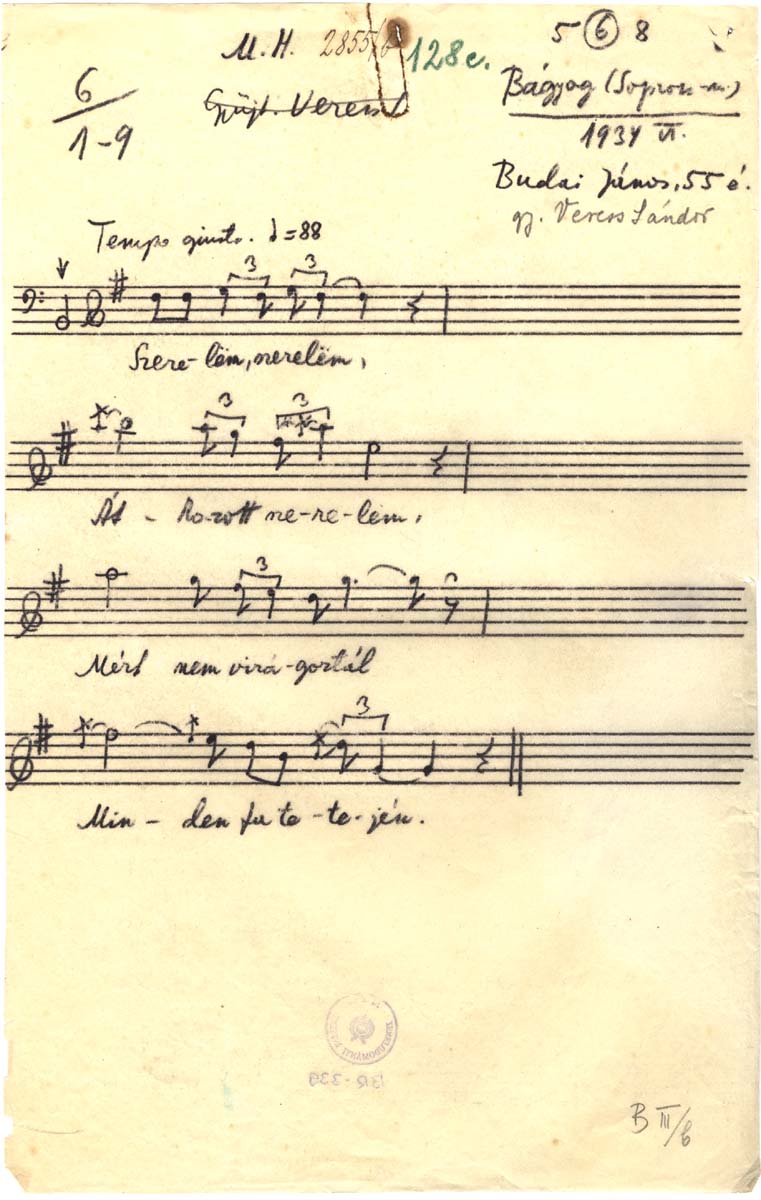 M. H. 2855/b 128e. 5 6 8
6
1-9
Gyüjt. Veress
Bágyog (Sopron-m.)
1934 VI.
Budai János, 55 é.
gy. Veress Sándor
Tempo giusto. ♩=88
3 3
Szere-lëm, szerelëm,
3 3
Át - ko-zott sze-re-lëm,
3
Mért nem virá-goztál
3
Min - den fa te-te-jén.
BR-339
B III/b